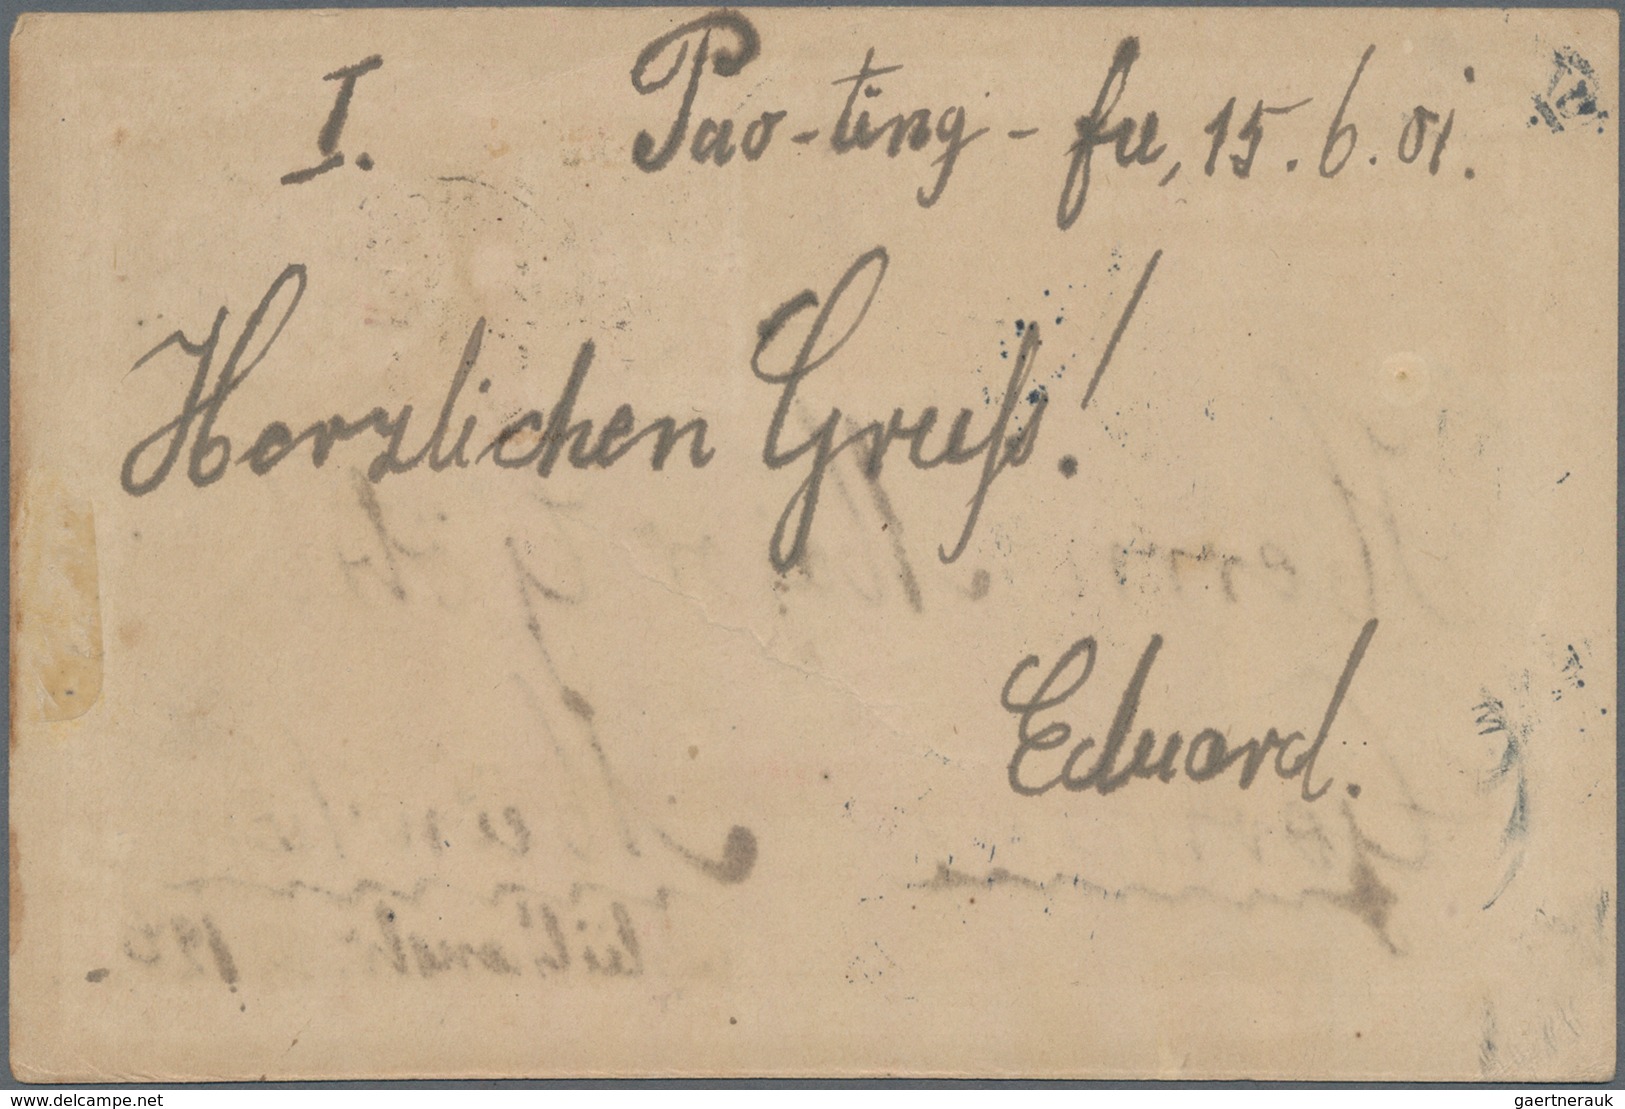 I. Pao-ting-fu, 15.6.01.
Herzlichen Gruß!
Eduard.
delcampe.net
gaertnerauk